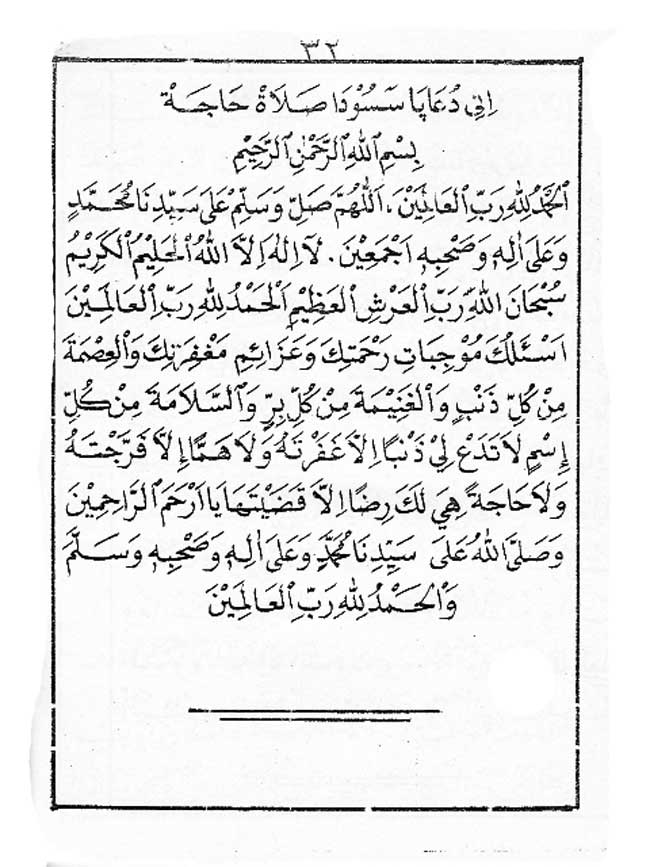 ٣٢
اِنِي دُعَاپَا سَسُوْدَا صَلَاةْ حَاجَةْ
بِسْمِ اللهِ الرَّحْمٰنِ الرَّحِيْمِ
اَلْحَمْدُ لِلّٰهِ رَبِّ الْعَالَمِيْنَ، اَللّٰهُمَّ صَلِّ وَسَلِّمْ عَلَى سَيِّدِنَا مُحَمَّدٍ
وَعَلَى اٰلِهِ وَصَحْبِهِ اَجْمَعِيْنَ. لَآ اِلٰهَ اِلَّا اللهُ الْحَلِيْمُ الْكَرِيْمُ
سُبْحَانَ اللهِ رَبِّ الْعَرْشِ الْعَظِيْمِ اَلْحَمْدُ لِلّٰهِ رَبِّ الْعَالَمِيْنَ
اَسْئَلُكَ مُوْجِبَاتِ رَحْمَتِكَ وَعَزَائِمِ مَغْفِرَتِكَ وَالْعِصْمَةَ
مِنْ كُلِّ ذَنْبٍ وَالْغَنِيْمَةَ مِنْ كُلِّ بِرٍّ وَالسَّلَامَةَ مِنْ كُلِّ
إِسْمٍ لَا تَدَعْ لِيْ ذَنْبًا اِلَّا غَفَرْتَهُ وَلَا هَمًّا إِلَّا فَرَّجْتَهُ
وَلَا حَاجَةً هِيَ لَكَ رِضًا اِلَّا قَضَيْتَهَا يَا اَرْحَمَ الرَّاحِمِيْنَ
وَصَلَّى اللهُ عَلَى سَيِّدِنَا مُحَمَّدٍ وَعَلَى اٰلِهِ وَصَحْبِهِ وَسَلَّمَ
وَالْحَمْدُ لِلّٰهِ رَبِّ الْعَالَمِيْنَ